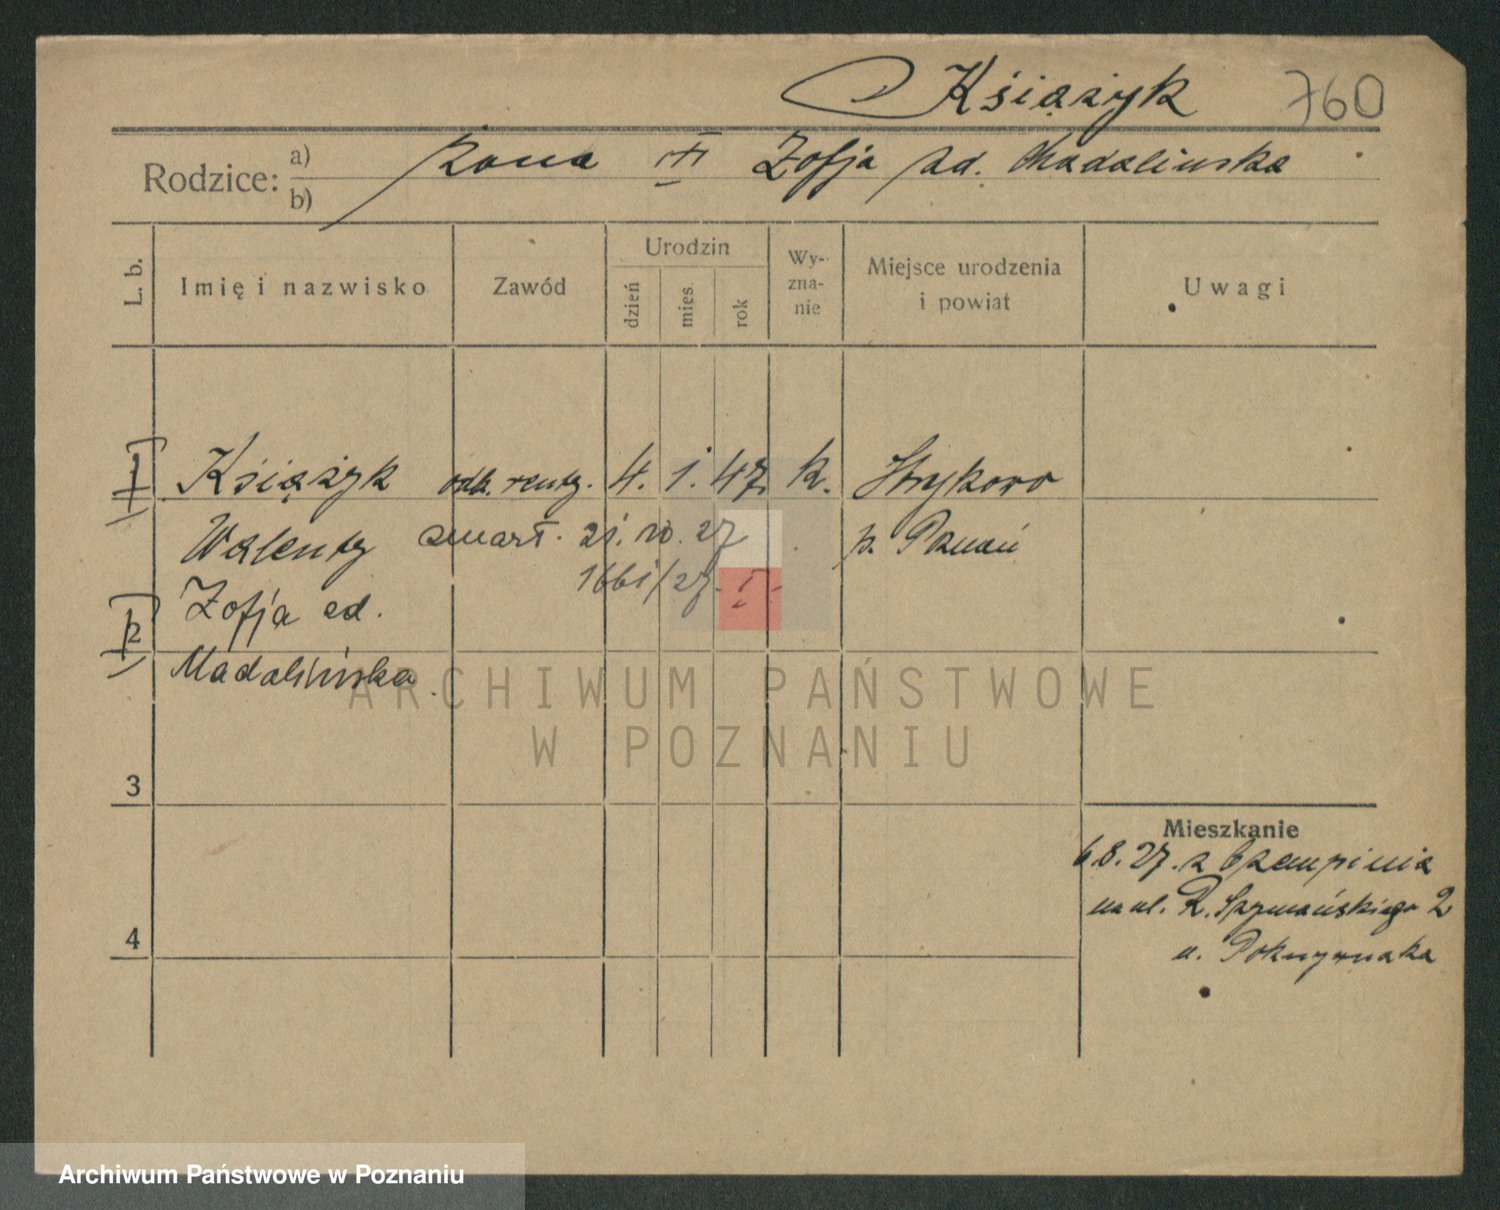 Książyk 760
Rodzice: a) żona Zofja zd. Madalinska
b)
L. b. Imię i nazwisko Zawód Urodzin dzień mies. rok Wy-zna-nie Miejsce urodzenia i powiat Uwagi
1 Książyk odb. renty. 4. 1. 47. k. Strykowo
Walenty zmarł. 21. 10. 27 p. Poznań
1661/27. I.
2 Zofja zd.
Madalińska.
3
4
Mieszkanie
6.8.27. z Czempinia
na ul. R. Szymańskiego 2
u. Pokrywnaka
ARCHIWUM PAŃSTWOWE
W POZNANIU
Archiwum Państwowe w Poznaniu